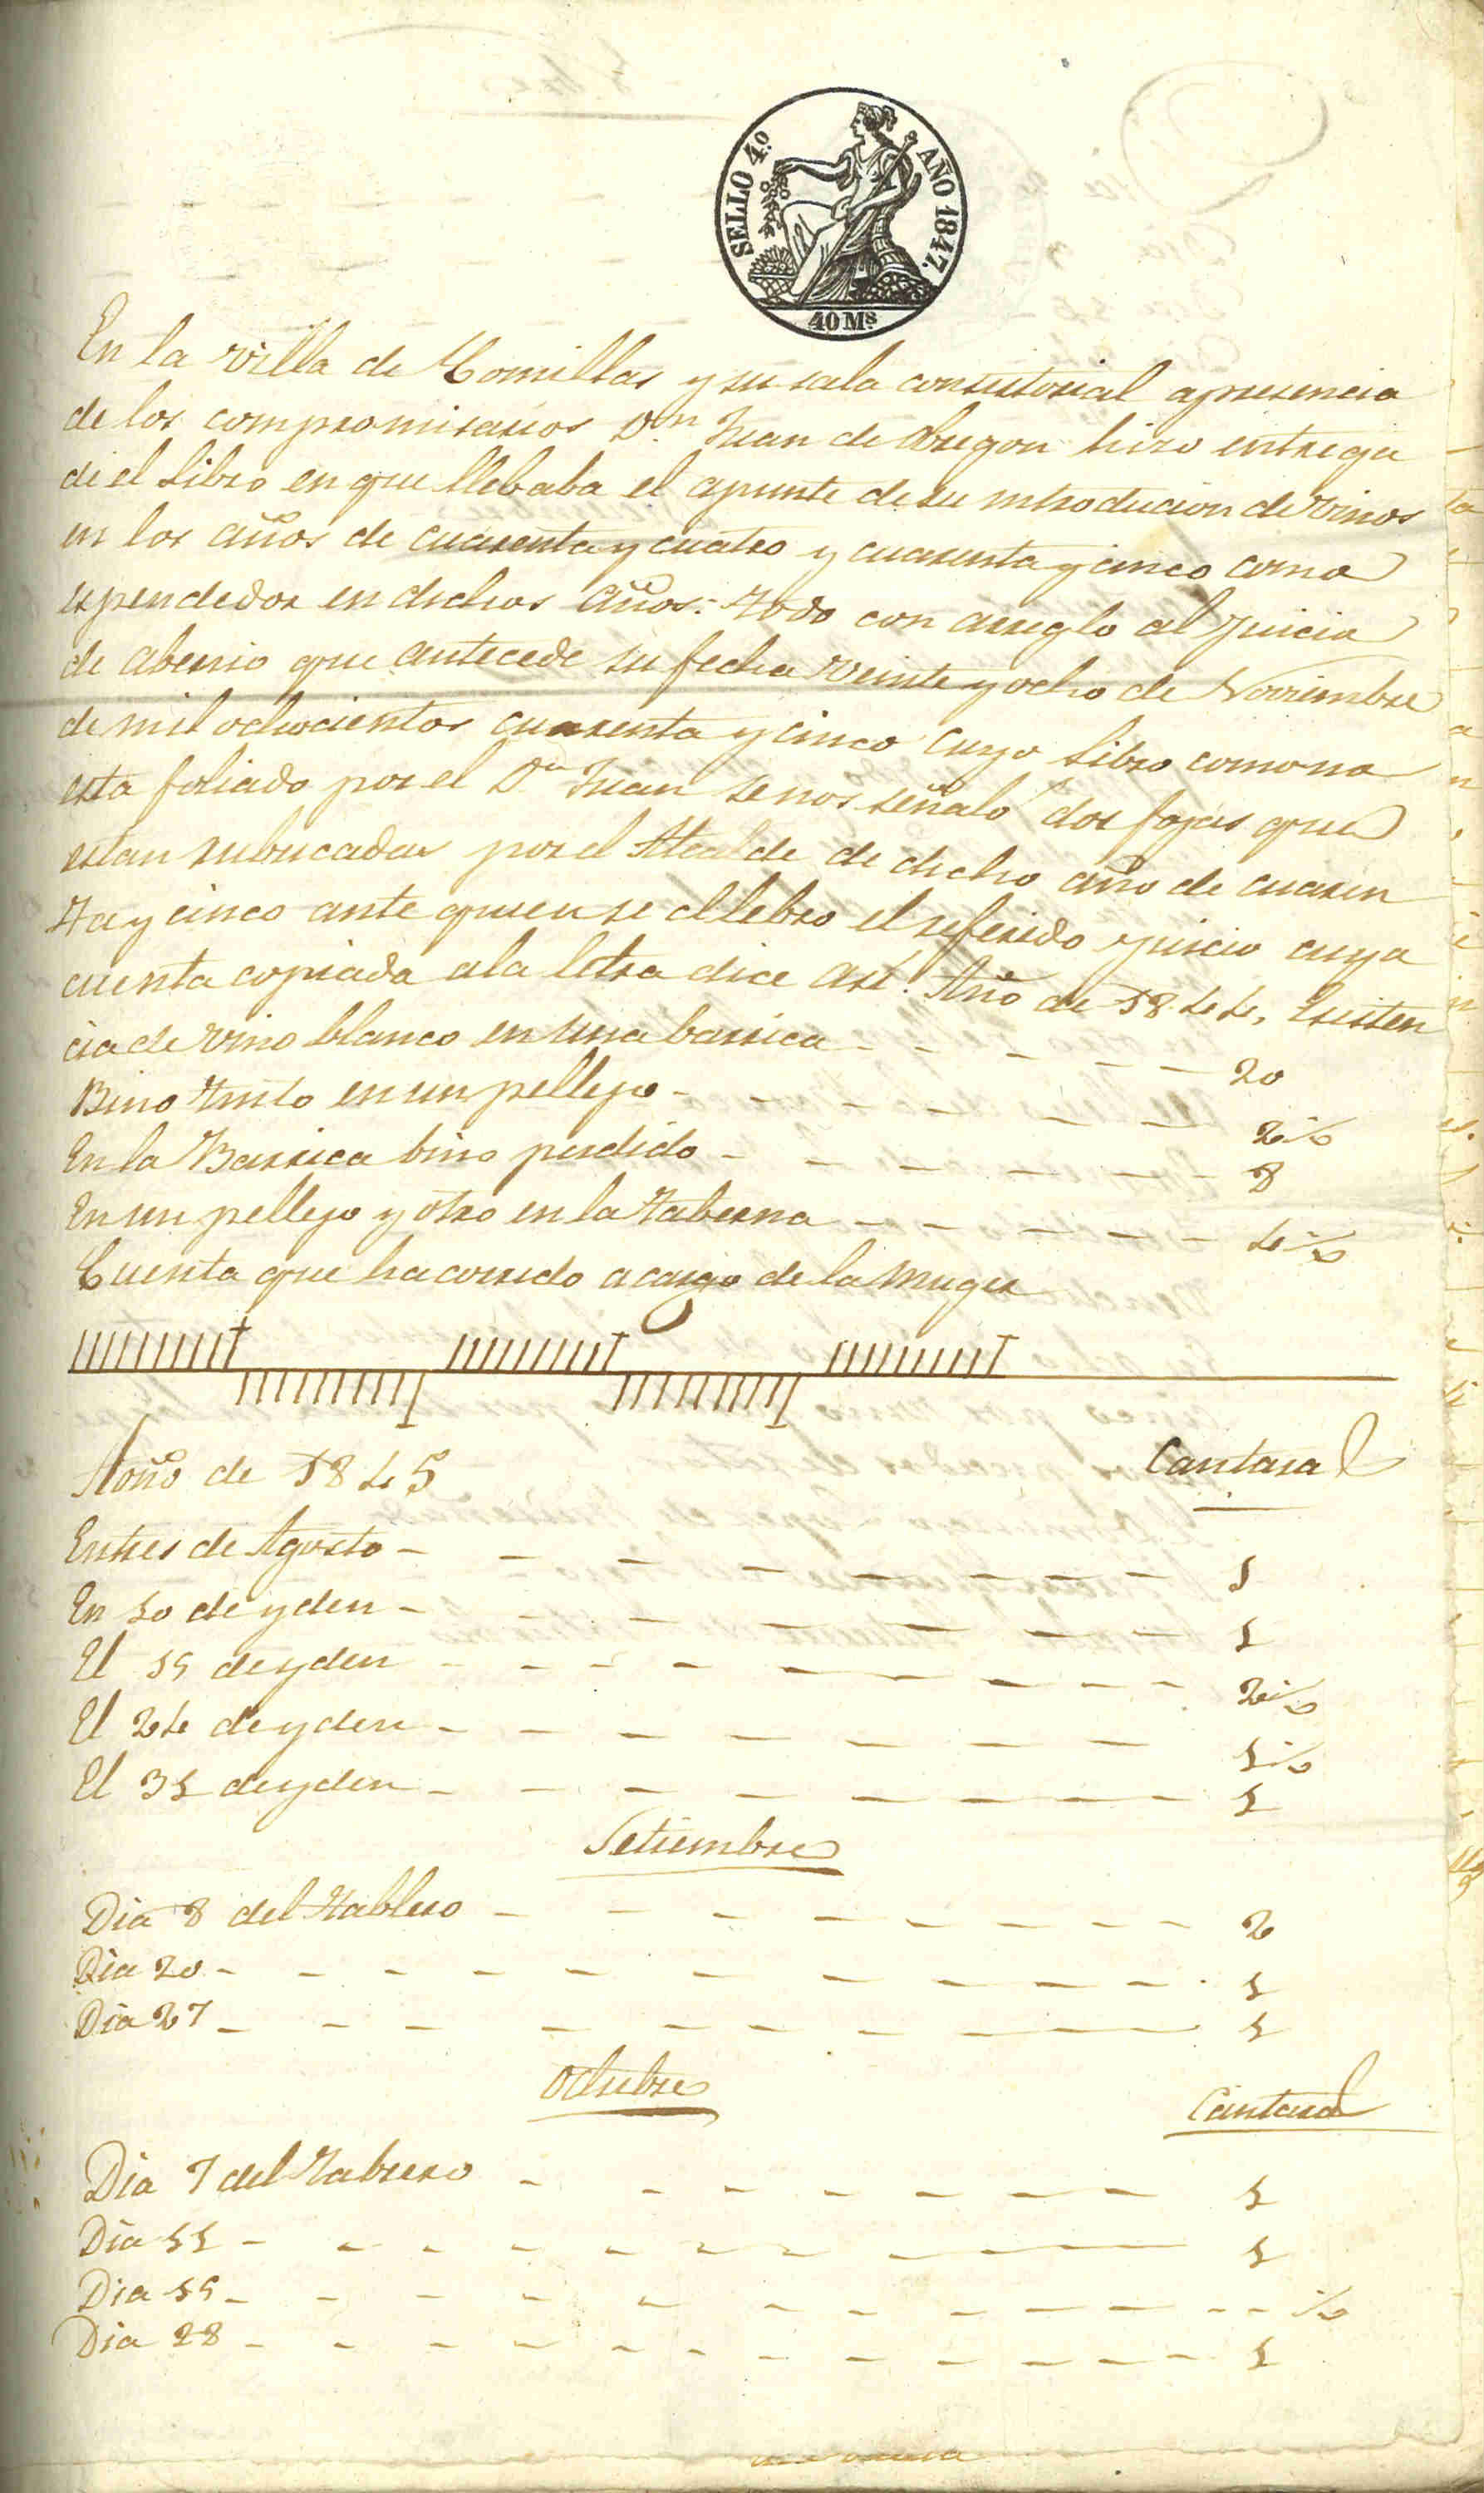 SELLO 4.º AÑO 1847.
40 Ms
En la villa de Comillas y su sala consistorial apresencia
de los compromisarios Dn Juan de Obregon hizo entrega
de el Libro en que llebaba el apunte de su introducion de vinos
en los años de cuarenta y cuatro y cuarenta y cinco como
espendedor en dichos años: todo con arreglo al juicio
de abenio que antecede su fecha veinte y ocho de Noviembre
de mil ochocientos cuarenta y cinco cuyo Libro como no
esta foliado por el Dn Juan se nos señaló dos fojas que
estan rubricadas por el Alcalde de dicho año de cuaren
ta y cinco ante quien se celebro el referido juicio cuya
cuenta copiada a la letra dice así. Año de 1844, Esisten
cia de vino blanco en una barrica 20
Bino tinto en un pellejo 2 ½
En la Barrica bino perdido 8
En un pellejo y otro en la taberna 4 ½
Cuenta que ha corrido a cargo de la muger
Año de 1845 Cantaras
Entres de Agosto 1
En 10 de yden 1
El 15 de yden 2 ½
El 24 de yden 1 ½
El 31 de yden 1
Setiembre
Dia 8 del tablero 2
Dia 20 1
Dia 27 1
Octubre Cantaras
Dia 7 del tabrero 1
Dia 11 1
Dia 15 ½
Dia 28 1